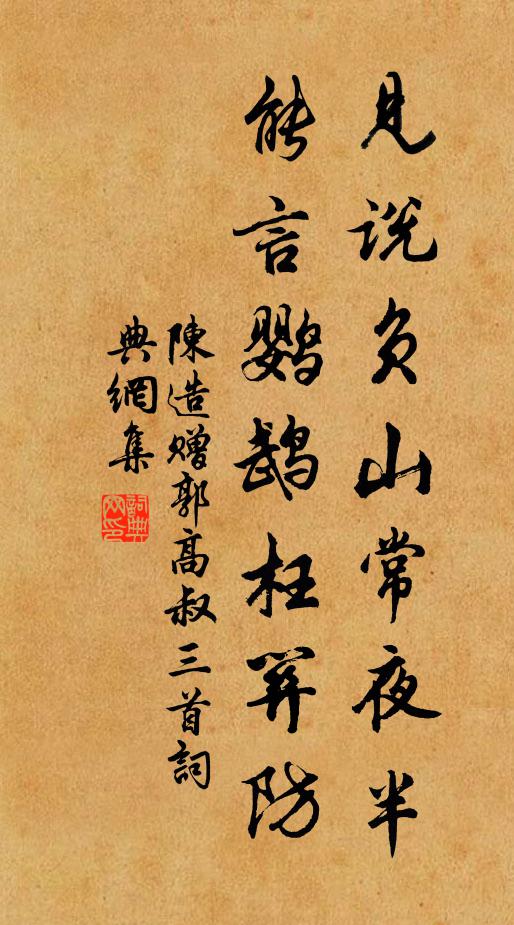 見說負山常夜半
能言鸚鵡枉關防
陳造贈郭高叔三首詞
典網集
詞典網印